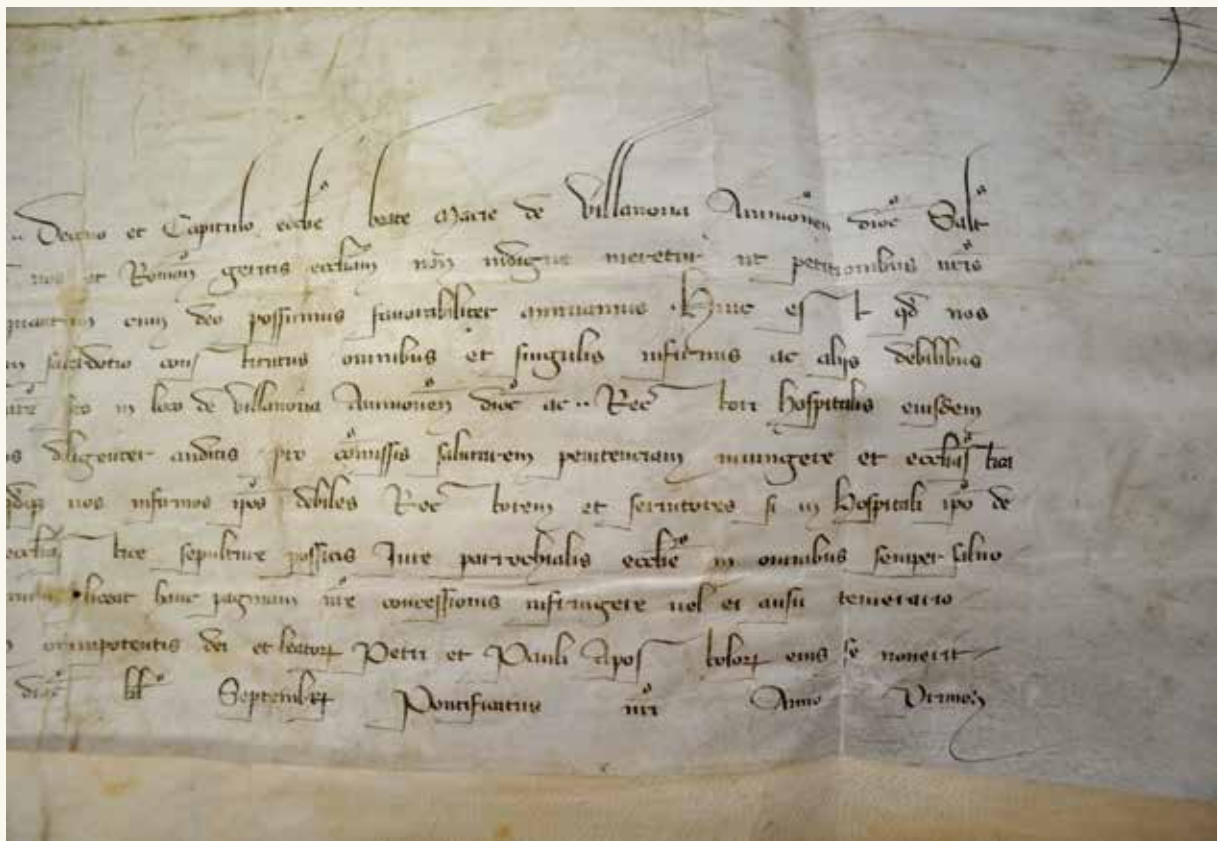 Decano et Capitulo ecclie beate Marie de Villanova Avinionen dioc Salt
nos et Roman geritis eccliam non indigne meretur ut petitionibus vris
quantum cum deo possumus favorabiliter annuamus Hinc est qd nos
sacerdotio constitutus omnibus et singulis infirmis ac alijs debilibus
in loco de Villanova Avinionen dioc ac Rectori hospitalis eiusdem
diligenter auditis pro comissis salutarem penitenciam iniungere et
nos infirmos ipos debiles Rectorem et servitores si in hospitali ipo de
ecclias tice sepulture possitis Jure parrochialis ecclie in omnibus semper salvo
liceat hanc paginam nre concessionis infringere vel ei ausu temerario
omnipotentis dei et beator Petri et Pauli Apostolor eius se noverit
Septembr Pontificatus nri Anno